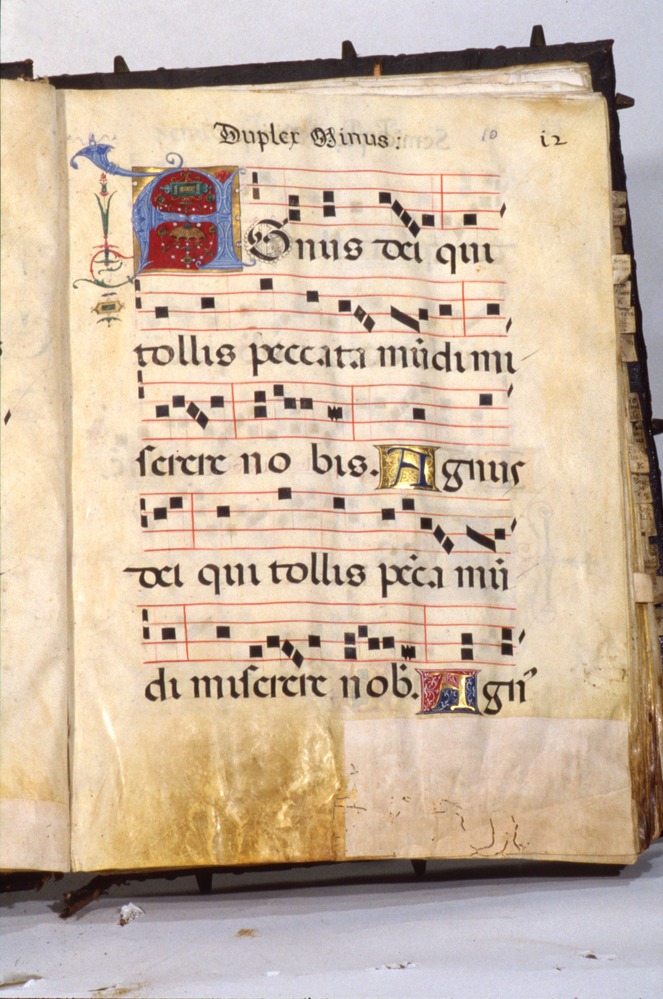 Duplex Minus: 10 12
AGnus dei qui
tollis peccata mūdi mi
serere no bis. Agnus
dei qui tollis pēca mū
di miserere nob̄. Agn̄